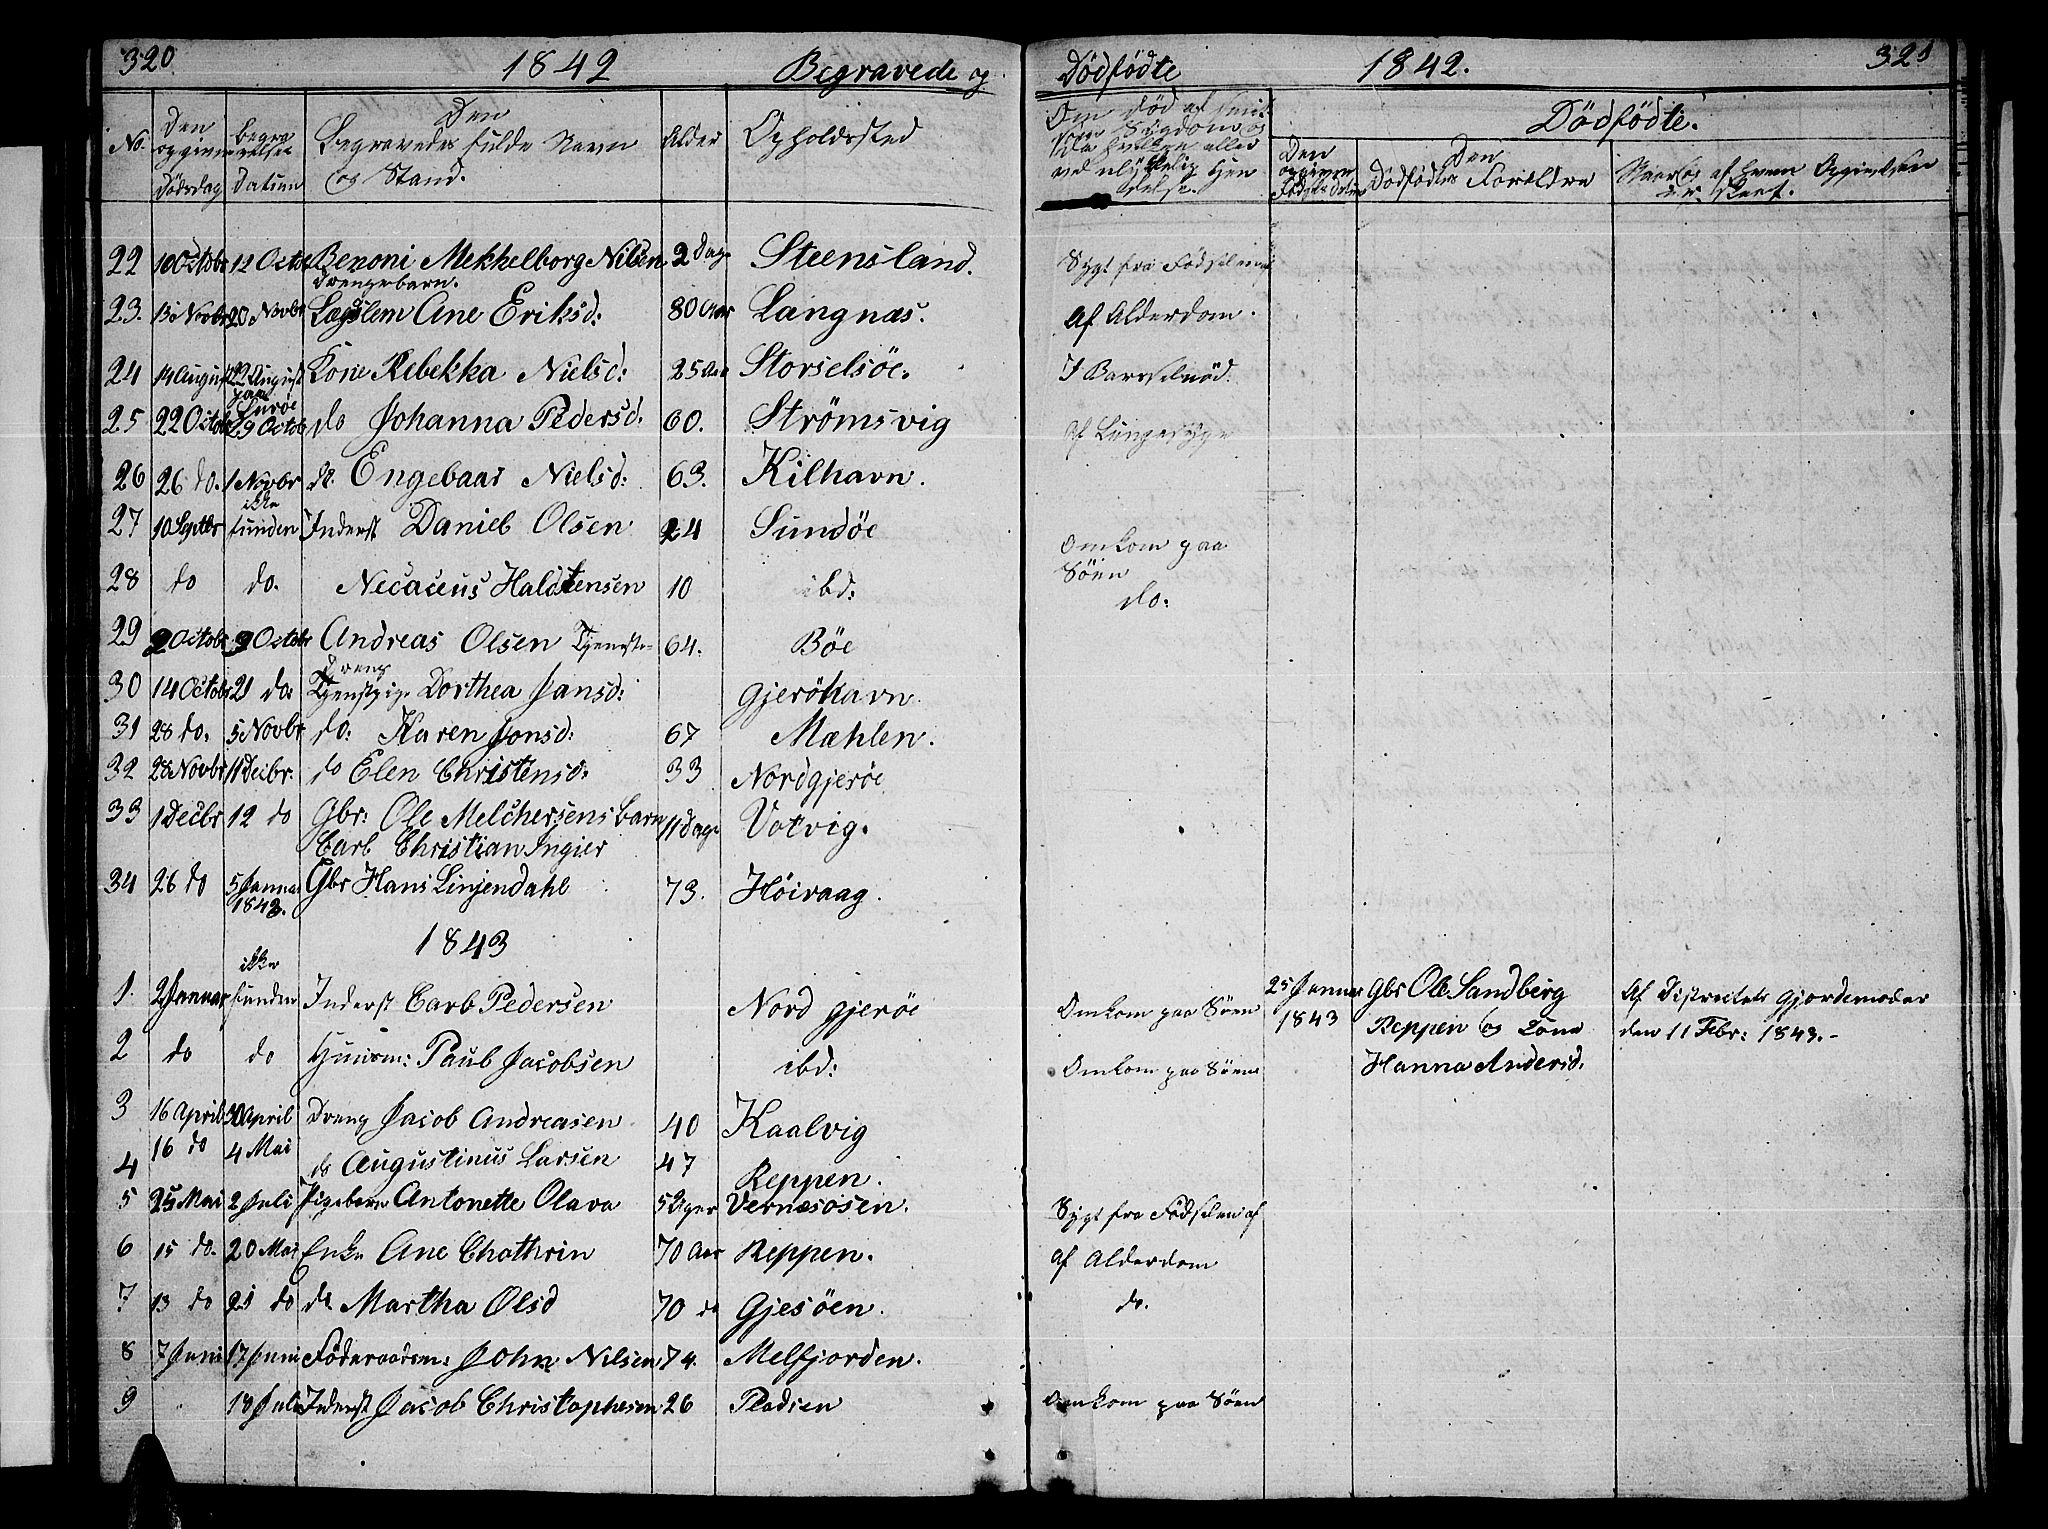 320 1842 Begravede og
No. Den opgivne Dødsdag Begravelses Datum Den Begravedes fulde Navn og Stand. Alder Opholdssted
22 10 Octobr 12 Octo Benoni Mekhelborg Nilsen 2 Dage Steensland.
Drengebarn.
23. 13 Novbr 20 Novbr Lægslem Ane Eriksd: 80 Aar Langnæs.
24 14 August 22 August Kone Rebekka Nielsd: 25 Aar Storselsöe.
paa Luröe
25 22 Octobr 29 Octobr do Johanna Pedersd. 60. Strömsvig
26 26 do. 1 Novbr do. Engebaar Nielsd: 63. Kilhavn.
27 10 Septbr ikke funden Inderst Daniel Olsen 24 Sundöe
28 do do. Necaceus Haldtensen 10 ibd:
29 2 Octobr 9 Octobr Andreas Olsen Tjeneste- 64. Böe
dreng
30 14 Octobr 21 do: Tjenstpige Dorthea Jansd: Gjeröhavn
31 28 do. 5 Novbr do: Karen Jonsd: 67 Mæhlen.
32 28 Novbr 11 Decbr. do Elen Christensd: 33 Nordgjeröe
33 1 Decbr 12 do Gbr: Ole Melchersens barn 11 dage Votvig.
Carl Christian Ingier
34 26 do 5 Januar 1843. Gbr Hans Linjendahl 73. Höivaag.
1843
1. 2 Januar ikke funden Inderst Carl Pedersen Nord Gjeröe
2 do do Huusm: Paul Jacobsen ibd:
3 16 April 30 April Dreng Jacob Andreasen 40 Kaalvig
4 16 do 4 Mai do Augustinus Larsen 47 Reppen.
5 25 Mai 2 Juli Pigebarn Antonette Olava 5 Uger Vernæsosen.
6 15 do. 20 Mai Enke Ane Chathrin 70 Aar Reppen.
7 13 do 21 do do Martha Olsd 70 do Gjesöen.
8 7 Juni 17 Juni Föderaadsm: John Nilsen 74. Melfjorden.
9 18 Juli Inderst Jacob Christophersen 26 Pladsen
Dödfödte 1842. 321
Om död af
Sygdom
ved ulykkelig Hændelse.
Dödfödte.
Den opgivne Födsels Datum Den Dödfödtes Foreldre Naar og af hvem Opgivelsen er skeet.
Sygt fra Födselen af
Af Alderdom.
I Barselnöd.
Af Lungesyge
Omkom paa
Söen
do:
Omkom paa Söen 25 Januar 1843 Gbr Ole Sandberg Af Districtets Gjordemoder
Reppen og Kone den 11 Febr: 1843.-
Omkom paa Söen Hanna Andersd.
Sygt fra Födselen af
Af Alderdom
do.
Omkom paa Söen